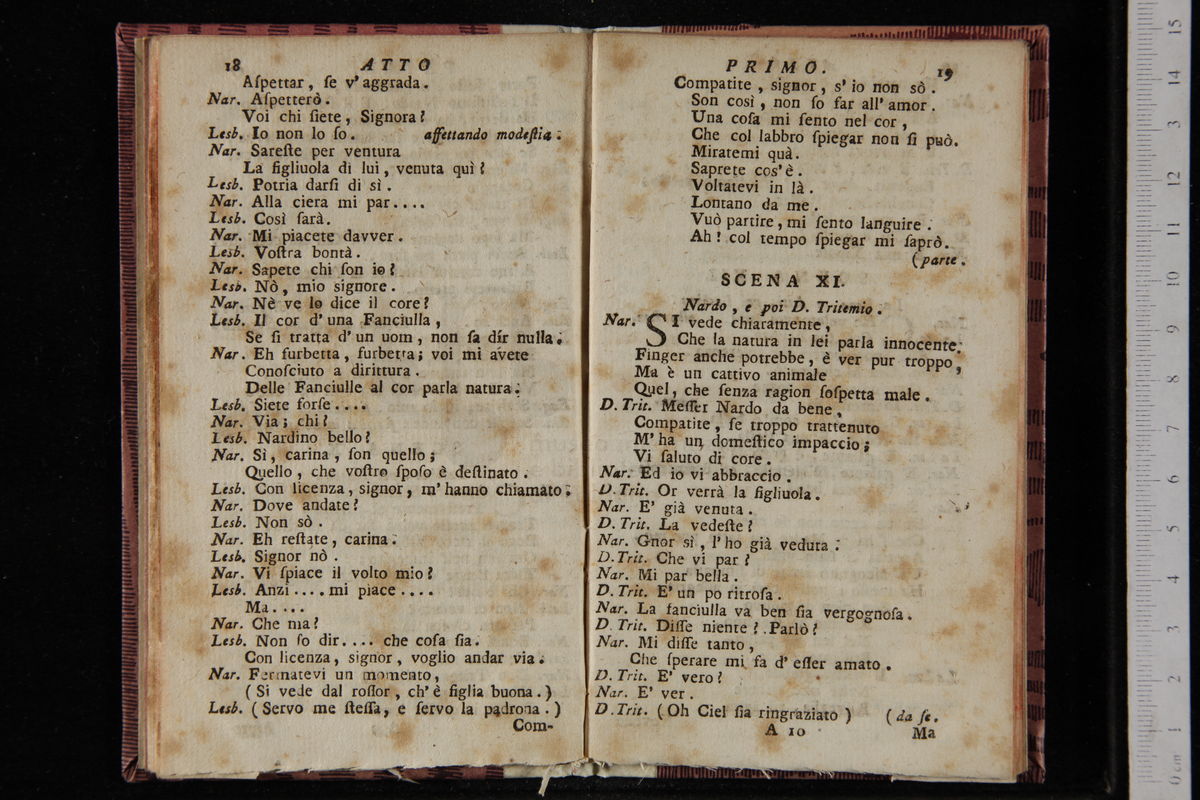 18 ATTO
Aſpettar, ſe v'aggrada.
Nar. Aſpetterò.
Voi chi ſiete, Signora?
Lesb. Io non lo ſo. affettando modeſtia.
Nar. Sareſte per ventura
La figliuola di lui, venuta quì?
Lesb. Potria darſi di sì.
Nar. Alla ciera mi par....
Lesb. Così ſarà.
Nar. Mi piacete davver.
Lesb. Voſtra bontà.
Nar. Sapete chi ſon io?
Lesb. Nò, mio signore.
Nar. Nè ve lo dice il core?
Lesb. Il cor d'una Fanciulla,
Se ſi tratta d'un uom, non ſa dir nulla.
Nar. Eh furbetta, furbetta; voi mi avete
Conoſciuto a dirittura.
Delle Fanciulle al cor parla natura.
Lesb. Siete forſe....
Nar. Via; chi?
Lesb. Nardino bello?
Nar. Sì, carina, ſon quello;
Quello, che voſtro ſpoſo è deſtinato.
Lesb. Con licenza, signor, m'hanno chiamato.
Nar. Dove andate?
Lesb. Non sò.
Nar. Eh reſtate, carina.
Lesb. Signor nò.
Nar. Vi ſpiace il volto mio?
Lesb. Anzi.... mi piace....
Ma....
Nar. Che ma?
Lesb. Non ſo dir.... che coſa ſia.
Con licenza, signor, voglio andar via.
Nar. Fermatevi un momento,
(Si vede dal roſſor, ch'è figlia buona.)
Lesb. (Servo me ſteſſa, e ſervo la padrona.)
Com-
PRIMO. 19
Compatite, signor, s'io non sò.
Son così, non ſo far all'amor.
Una coſa mi ſento nel cor,
Che col labbro ſpiegar non ſi può.
Miratemi quà.
Saprete cos'è.
Voltatevi in là.
Lontano da me.
Vuò partire, mi ſento languire.
Ah! col tempo ſpiegar mi ſaprò.
(parte.
SCENA XI.
Nardo, e poi D. Tritemio.
Nar. SI vede chiaramente,
Che la natura in lei parla innocente.
Finger anche potrebbe, è ver pur troppo,
Ma è un cattivo animale
Quel, che ſenza ragion ſoſpetta male.
D. Trit. Meſſer Nardo da bene,
Compatite, ſe troppo trattenuto
M'ha un domeſtico impaccio;
Vi ſaluto di core.
Nar. Ed io vi abbraccio.
D. Trit. Or verrà la figliuola.
Nar. E' già venuta.
D. Trit. La vedeſte?
Nar. Gnor sì, l'ho già veduta.
D. Trit. Che vi par?
Nar. Mi par bella.
D. Trit. E' un po ritroſa.
Nar. La fanciulla va ben ſia vergognoſa.
D. Trit. Diſſe niente? Parlò?
Nar. Mi diſſe tanto,
Che ſperare mi fa d'eſſer amato.
D. Trit. E' vero?
Nar. E' ver.
D. Trit. (Oh Ciel ſia ringraziato) (da ſe.
A 10 Ma
0 cm 1 2 3 4 5 6 7 8 9 10 11 12 13 14 15